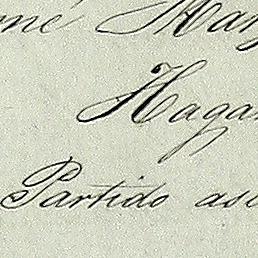 né Mar
Hagan
Partido asi